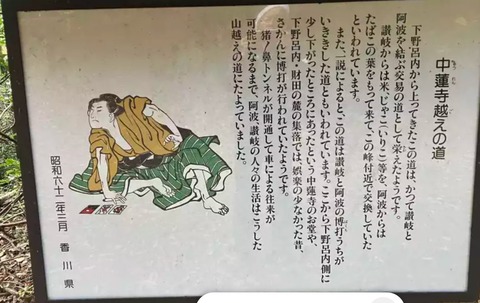 中蓮寺越えの道
下野呂内から上ってきたこの道は、かつて讃岐と
阿波を結ぶ交易の道として栄えたようです。
讃岐からは米、じゃこ(いりこ)等を、阿波からは
たばこの葉をもって来て、この峰付近で交換していた
といわれています。
また、一説によるとこの道は讃岐と阿波の博打うちが
いききした道ともいわれています。ここから下野呂内側に
少し下がったところにあったという中蓮寺のお堂や、
下野呂内・財田の麓の集落では、娯楽の少なかった昔、
さかんに博打が行われていたようです。
猪ノ鼻トンネルが開通して車による往来が
可能になるまで、阿波、讃岐の人々の生活はこうした
山越えの道にたよっていました。
昭和六十二年三月 香川県